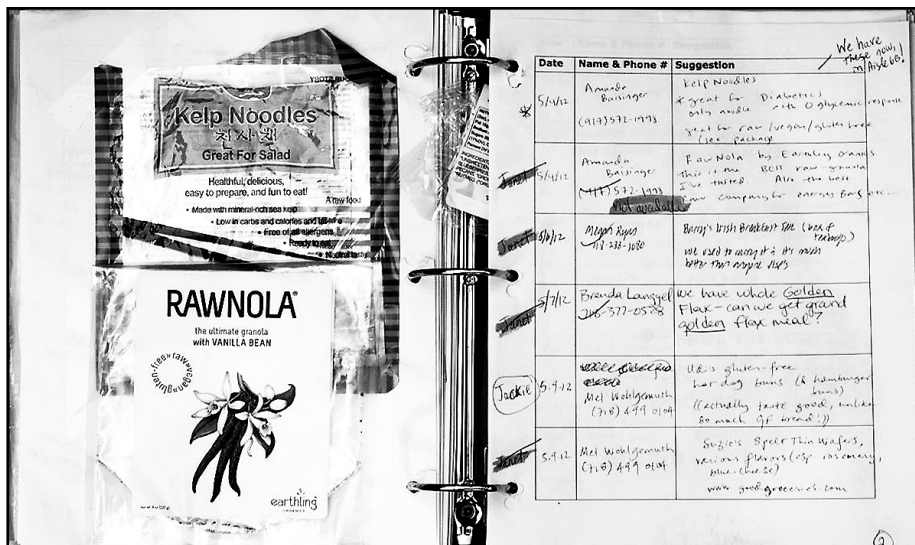 Kelp Noodles
천사채
Great For Salad
Healthful, delicious,
easy to prepare, and fun to eat!
A raw food
• Made with mineral-rich sea kelp
• Low in carbs and calories and
• Free of all allergens
• Ready to eat
Neutral taste
RAWNOLA
the ultimate granola
with VANILLA BEAN
gluten-free raw vegan
earthling
ORGANICS
We have
these now,
in Aisle 6B!
Date
Name & Phone #
Suggestion
5/4/12
Amanda
Baisinger
(917) 572-1993
Kelp Noodles
* great for Diabetics
only noodle with 0 glycemic response
great for raw/vegan/gluten free
(see package
Janet
5/4/12
Amanda
Baisinger
(917) 572-1993
Not available
RawNola by Earthling Organics
this is the BEST raw granola
I've tasted. Also the best
raw company for energy bars
Janet
Megan
718-233-1080
Barry's Irish Breakfast Tea (box of
teabags)
We used to carry it & it's much
better than anyone else's
Janet
5/7/12
Brenda Langyel
577-0528
We have whole Golden
Flax-can we get grand
golden flax meal?
Jackie
5.9.12
Mel Wohlgemuth
(718) 499 0104
Udi's gluten-free
hot dog buns (& hamburger
buns)
((actually taste good, unlike
so much GF bread!))
Janet
5.9.12
Mel Wohlgemuth
(718) 499 0104
Suzie's Spelt Thin Wafers,
various flavors (esp rosemary,
blue-cheese)
2